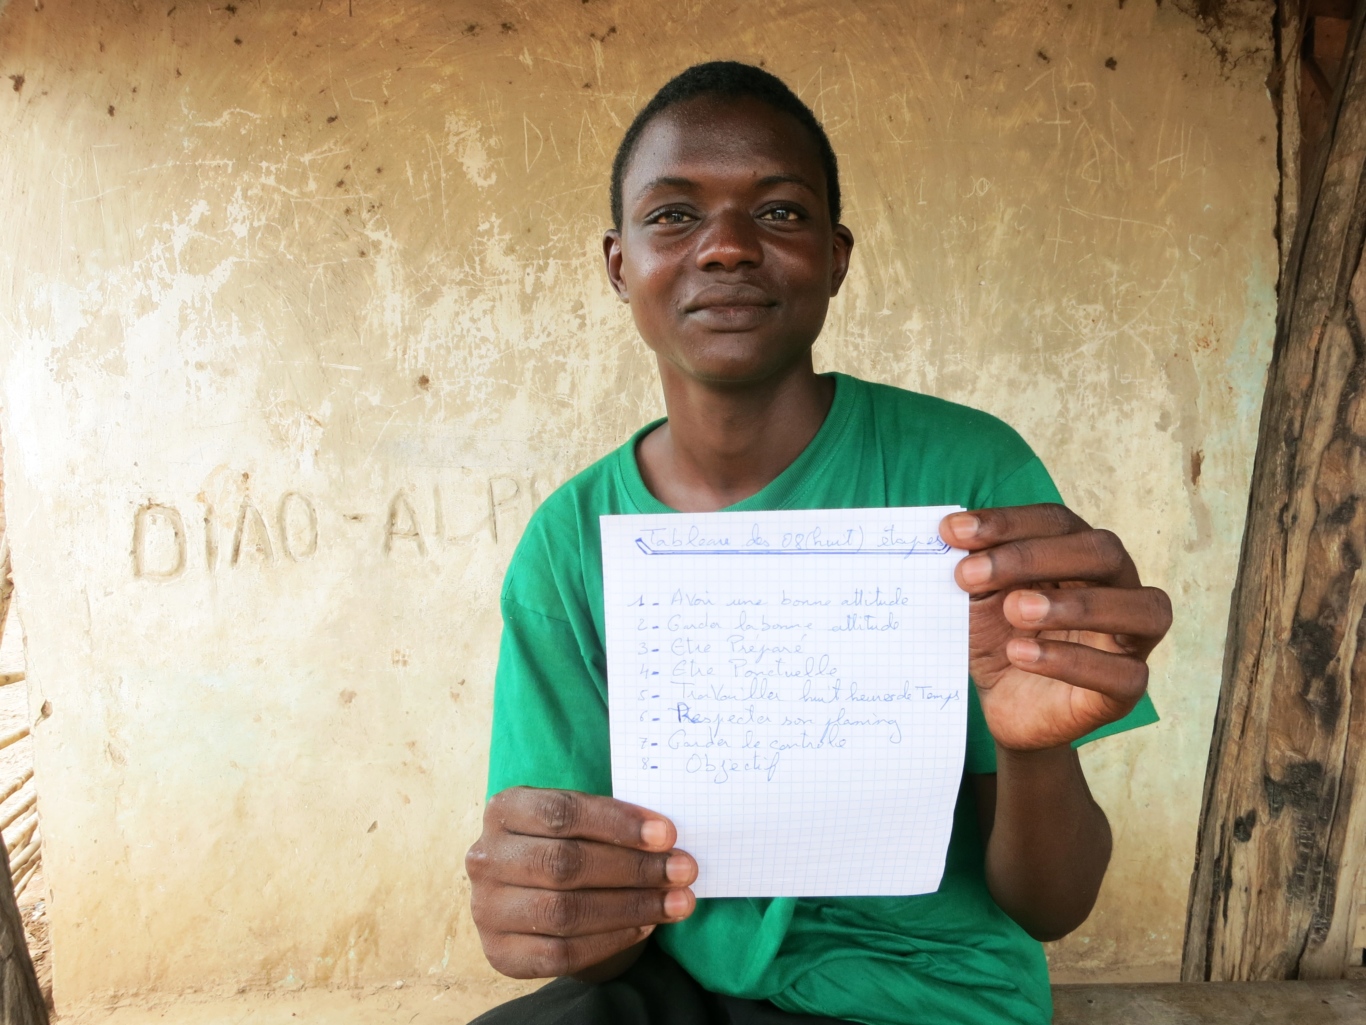 DIAO-ALP
Tableau des 08(huit) étapes
1- Avoir une bonne attitude
2- Garder la bonne attitude
3- Etre Préparé
4- Etre Ponctuelle
5- Travailler huit heures de Temps
6- Respecter son planing
7- Garder le controle
8- Objectif